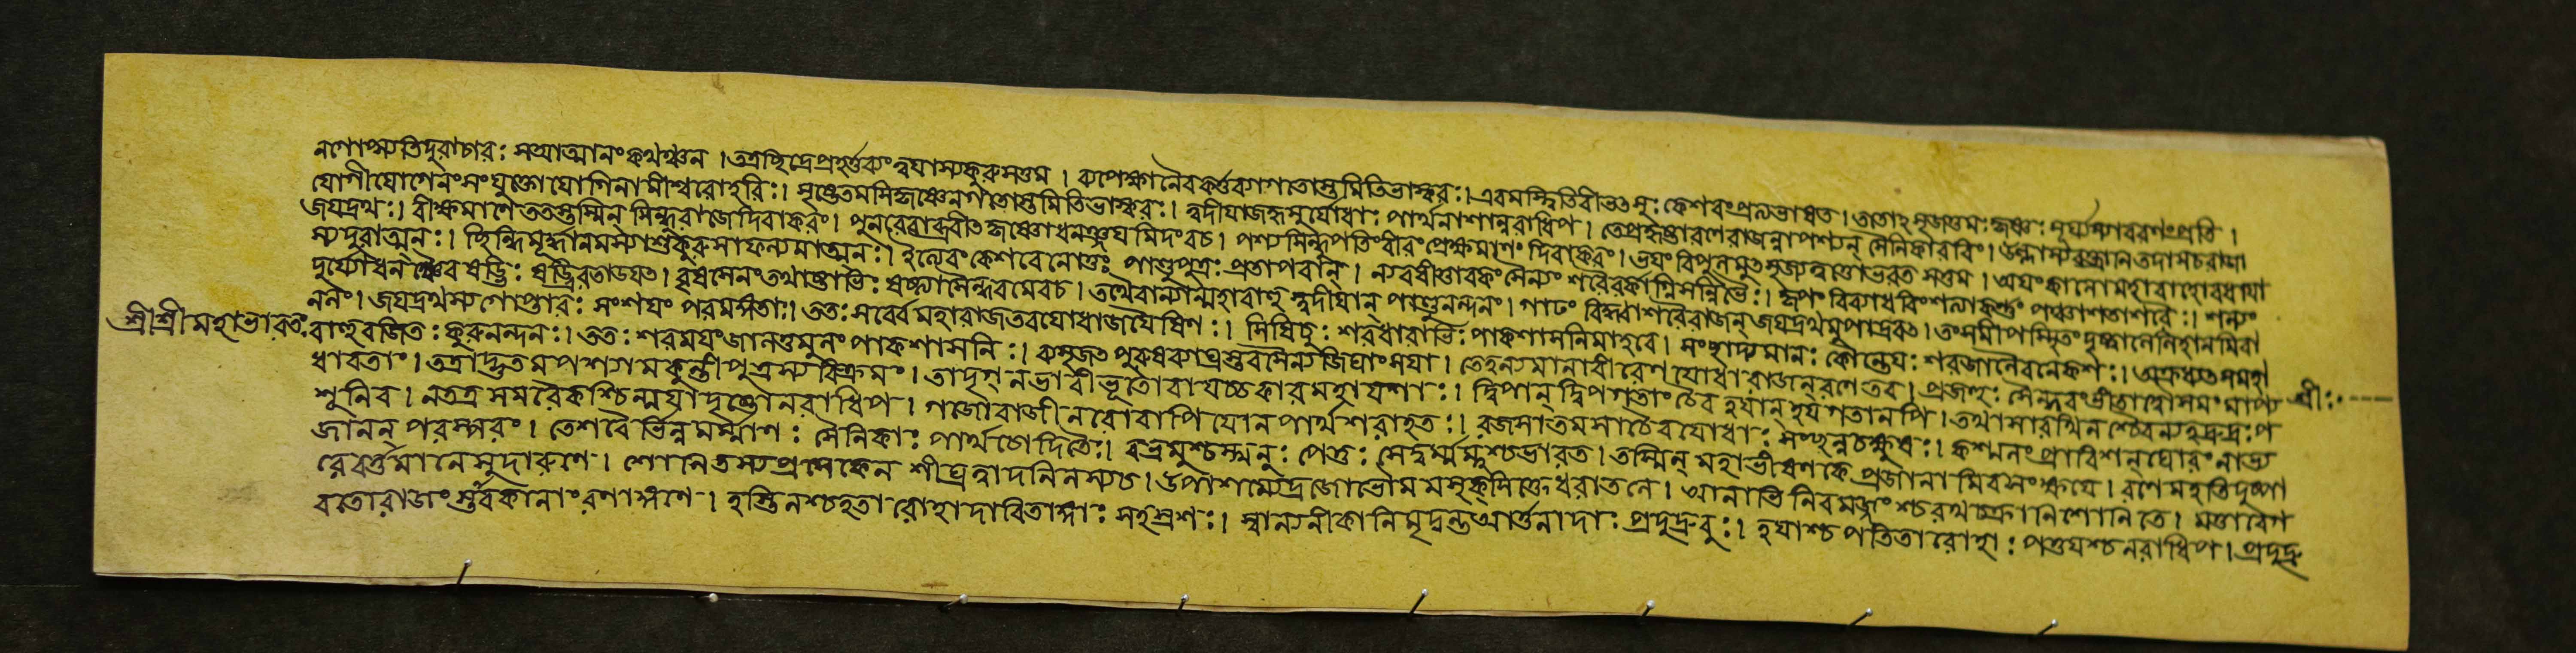 নগোপ্স্যতিদুরাচারঃ সআত্মানং কথঞ্চন । তত্রছিদ্রেপ্রহর্ত্তব্যং ত্বযাস্যকুরুসত্তম । ব্যপেক্ষানৈবকর্ত্তব্যাগতোস্তমিতিভাস্করঃ । এবমস্ত্বিতিবীভৎসুঃ কেশবংপ্রত্যভাষত । ততোহসৃজত্তমঃ কৃষ্ণঃ সূর্য্যস্যাবরণংপ্রতি ।
যোগীযোগেনসংযুক্তোযোগিনামীশ্বরোহরিঃ । সৃষ্টেতমসিকৃষ্ণেনগতোস্তমিতিভাস্করঃ । ত্বদীযাজহৃষুর্যোধাঃ পার্থনাশান্নরাধিপ । তেপ্রহৃষ্টারণেরাজন্নাপশ্যন্ সৈনিকারবিং । উন্নাম্যবক্ত্রাণিতদাসচরাজা
জযদ্রথঃ । বীক্ষমাণেততস্তস্মিন্ সিন্ধুরাজেদিবাকরং । পুনরেবাব্রবীৎকৃষ্ণোধনঞ্জযমিদংবচ । পশ্যসিন্ধুপতিংবীরংপ্রেক্ষমাণং দিবাকরং । ভযং বিপুলমুৎসৃজ্যত্বত্তোভরতসত্তম । অযংকালোমহাবাহোবধাযা
স্যদুরাত্মনঃ । ছিন্ধিমূর্দ্ধানমস্যাশুকুরুসাফল্যমাত্মনঃ । ইত্যেবংকেশবেনোক্তঃ পাণ্ডুপুত্রঃ প্রতাপবান্ । ন্যবধীত্তাবকংসৈন্যং শরৈরর্কাগ্নিসন্নিভৈঃ । কৃপং বিব্যাধবিংশত্যাকর্ণং পঞ্চাশতাশরৈঃ । শল্যং
দুর্য্যোধনঞ্চৈবষড্ভিঃ ষড্ভিরতাডযৎ । বৃষসেনংতথাষ্টাভিঃ ষষ্ট্যাসৈন্ধবমেবচ । তথৈবান্যান্মহাবাহু স্ত্বদীযান্ পাণ্ডুনন্দনং । গাঢং বিদ্ধ্বাশরৈরাজন্ জযদ্রথমুপাদ্রবৎ । তংসমীপস্থিতংদৃষ্ট্বালেলিহানমিবা
ননং । জযদ্রথস্যগোপ্তারঃ সংশযং পরমঙ্গতাঃ । ততঃ সর্ব্বেমহারাজতবযোধাজযৈষিণঃ । সিষিচুঃ শরধারাভিঃ পাকশাসনিমাহবে । সংছাদ্যমানঃ কৌন্তেযঃ শরজালৈরনেকশঃ । অক্রুধ্যৎসমহা
শ্রীশ্রীমহাভারতঃ বাহুরজিতঃ কুরুনন্দনঃ । ততঃ শরমযংজালন্তুমুলং পাকশাসনিঃ । ব্যসৃজৎপুরুষব্যাঘ্রস্তবসৈন্যজিঘাংসযা । তেহন্যমানাবীরেণযোধারাজন্ রণেতব । প্রজহুঃ সৈন্ধবংভীতাদ্বৌসমংনাপ্য শ্রীঃ
ধাবতাং । তত্রাদ্ভুতমপশ্যামকুন্তীপুত্রস্যবিক্রমং । তাদৃগ্নভাবীভূতোবাযচ্চকারমহাযশাঃ । দ্বিপান্ দ্বিপগতাংচৈব হযান্ হযগতানপি । তথাসারথিনশ্চৈবন্যহন্রুদ্রঃ প
শুনিব । নতত্রসমরেকশ্চিন্মযাদৃষ্টোনরাধিপ । গজোবাজী নরোবাপিযোনপার্থশরাহতঃ । রজসাতমসাচৈবযোধাঃ সংছন্নচক্ষুষঃ । কশ্মলংপ্রাবিশন্ ঘোরংনান্ব
জানন্ পরস্পরং । তেশরৈর্ভিন্নমর্ম্মাণঃ সৈনিকাঃ পার্থচোদিতৈঃ । বভ্রমুশ্চস্খলুঃ পেতুঃ সেদুর্মম্লুশ্চভারত । তস্মিন্ মহাভীষণকেপ্রজানামিবসংক্ষযে । রণেমহতিদুষ্পা
রেবর্ত্তমানেসুদারুণে । শোনিতস্যপ্রসেকেন শীঘ্রত্বাদনিলস্যচ । উপাশাম্যদ্রজোভৌমমসৃক্সিক্তেধরাতলে । আনাভিনিরমজ্জংশ্চরথচক্রানিশোনিতে । মত্তাবেগ
বতোরাজংস্তবকানাংরণাঙ্গণে । হস্তিনশ্চহতারোহাদারিতাঙ্গাঃ সহস্রশঃ । স্বান্যনীকানিমৃদ্নন্তআর্ত্তনাদাঃ প্রদুদ্রুবুঃ । হযাশ্চপতিতারোহাঃ পত্তযশ্চনরাধিপ । প্রদুদ্রু